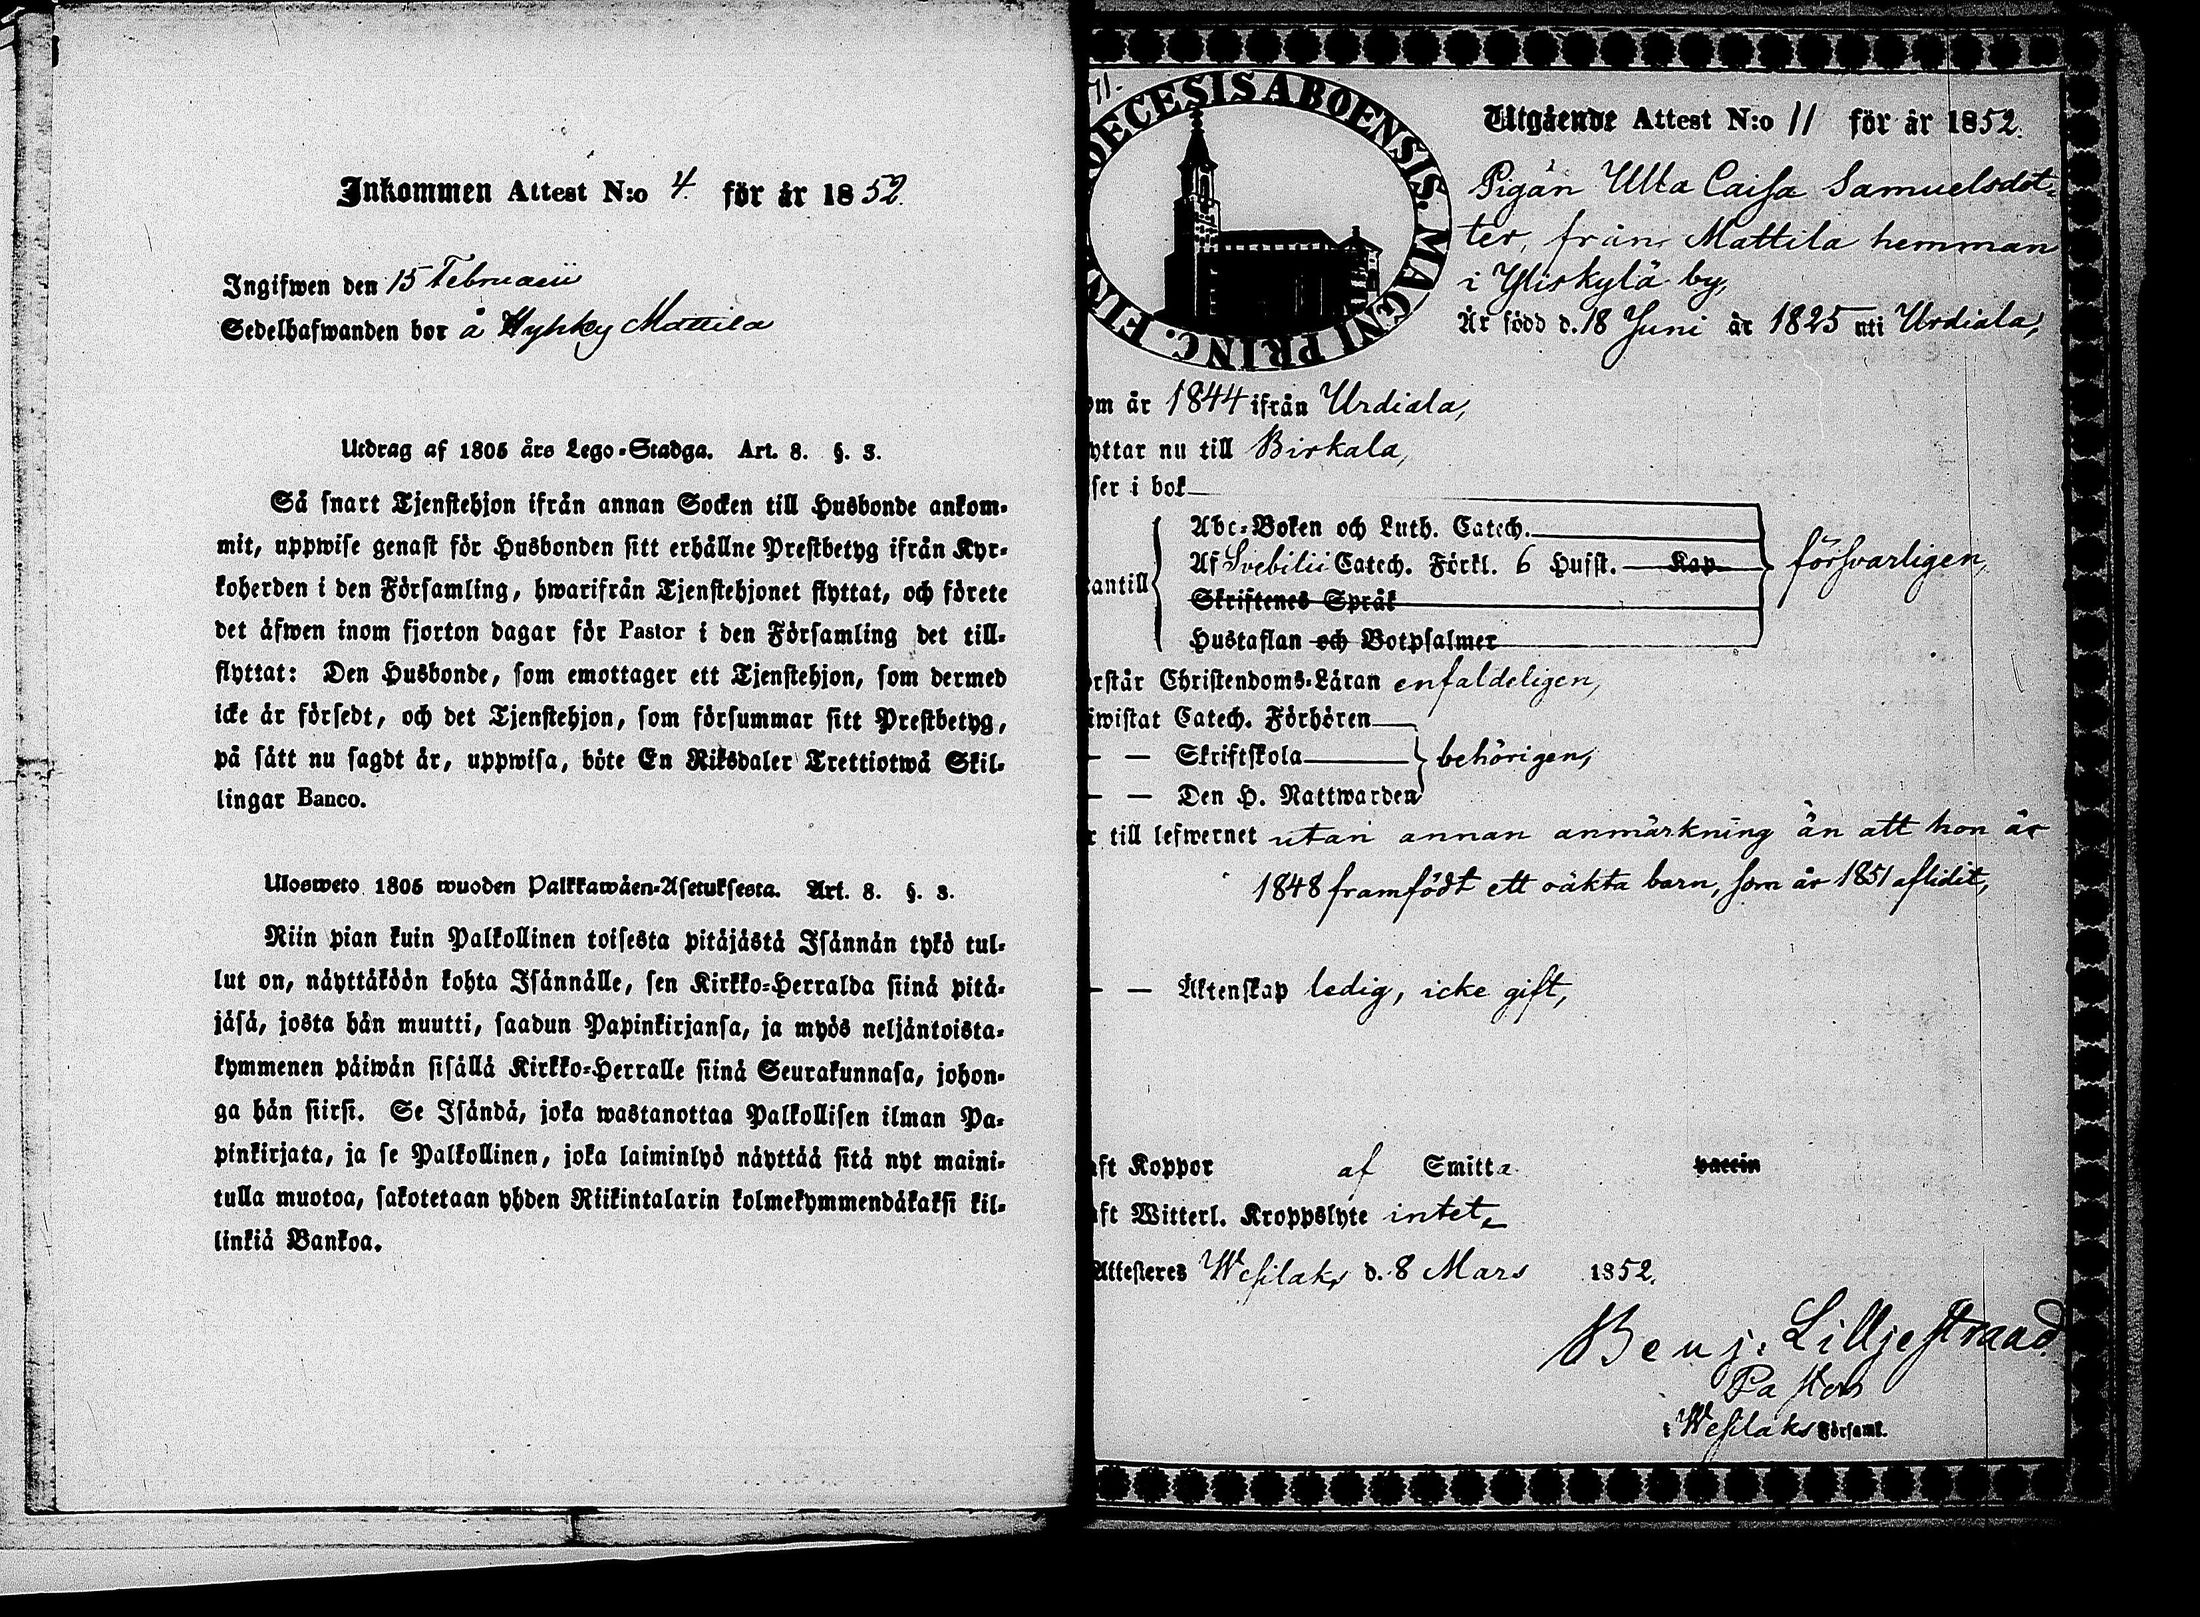 Inkommen Attest N:o 4. för år 1852.
Ingifwen den 15 Februarii
Sedelhafwanden bor å Hyhky Mattila
Utdrag af 1805 års Lego-Stadga. Art. 8. §. 3.
Så snart Tjenstehjon ifrån annan Socken till Husbonde ankom-
mit, uppwise genast för Husbonden sitt erhållne Prestbetyg ifrån Kyr-
koherden i den Församling, hwarifrån Tjenstehjonet flyttat, och förete
det äfwen inom fjorton dagar för Pastor i den Församling det till-
flyttat: Den Husbonde, som emottager ett Tjenstehjon, som dermed
icke är försedt, och det Tjenstehjon, som försummar sitt Prestbetyg,
på sätt nu sagdt är, uppwisa, böte En Riksdaler Trettiotwå Skil-
lingar Banco.
Ulosweto 1805 wuoden Palkkawäen-Asetuksesta. Art. 8. §. 3.
Niin pian kuin Palkollinen toisesta pitäjästä Isännän tykö tul-
lut on, näyttäköön kohta Isännälle, sen Kirkko-Herralda siinä pitä-
jäsä, josta hän muutti, saadun Papinkirjansa, ja myös neljäntoista-
kymmenen päiwän sisällä Kirkko-Herralle siinä Seurakunnasa, johon-
ga hän siirsi. Se Isändä, joka wastanottaa Palkollisen ilman Pa-
pinkirjata, ja se Palkollinen, joka laiminlyö näyttää sitä nyt maini-
tulla muotoa, sakotetaan yhden Riikintalarin kolmekymmendäkaksi kil-
linkiä Bankoa.
11.
DECESIS ABOENSIS. MAGNI PRINC. FIN
Utgående Attest N:o 11 för år 1852.
Pigan Ulla Caisa Samuelsdot-
ter, från Mattila hemman
i Yliskylä by,
Är född d. 18 Juni år 1825 uti Urdiala,
om år 1844 ifrån Urdiala,
yttar nu till Birkala,
ser i bok
Abc-Boken och Luth. Catech.
Af Svebilii Catech. Förkl. 6 Hufst. Kap.
antill försvarligen,
Skriftenes Språk
Hustaflan och Botpsalmer
rstår Christendoms-Läran enfaldeligen,
iwistat Catech. Förhören
— — Skriftskola behörigen,
— — Den H. Nattwarden
r till lefwernet utan annan anmärkning än att hon år
1848 framfödt ett oäkta barn, som år 1851 aflidit,
— — Äktenskap ledig, icke gift,
aft Koppor af Smitta vaccin
aft Witterl. Kroppslyte intet,
Attesteres Wesilaks d. 8 Mars 1852.
Benj. Lilljestraad.
Pastor
i Wesilaks Församl.